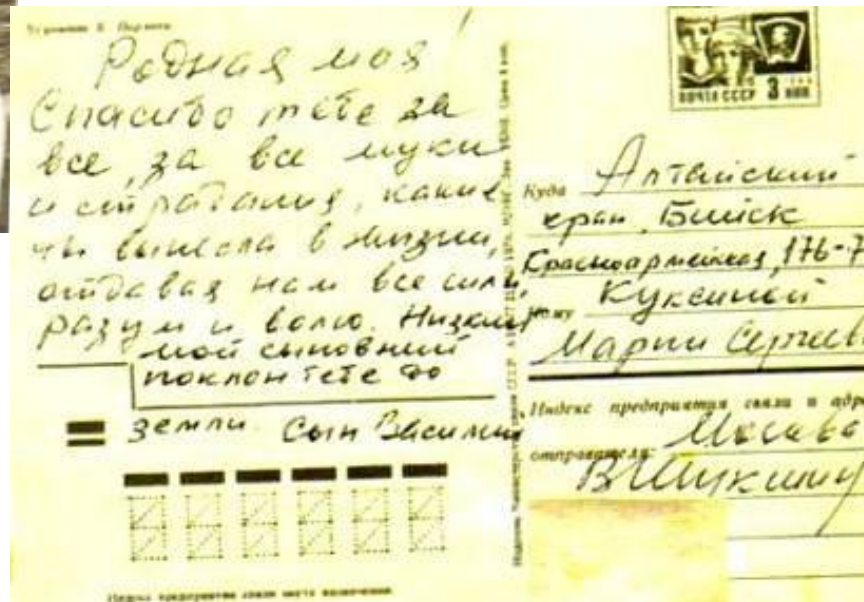 Родная моя!
Спасибо тебе за
все, за все муки
и страдания, какие
ты вынесла в жизни,
отдавая нам все силы,
разум и волю. Низкий
мой сыновний
поклон тебе до
земли. Сын Василий
ПОЧТА СССР 3 КОП
Куда Алтайский
край, Бийск
Красноармейская, 176-7
Кому Куксиной
Марии Сергеев
Индекс предприятия связи и адре
отправителя: Москва
В Шукшину
Индекс предприятия связи места назначения